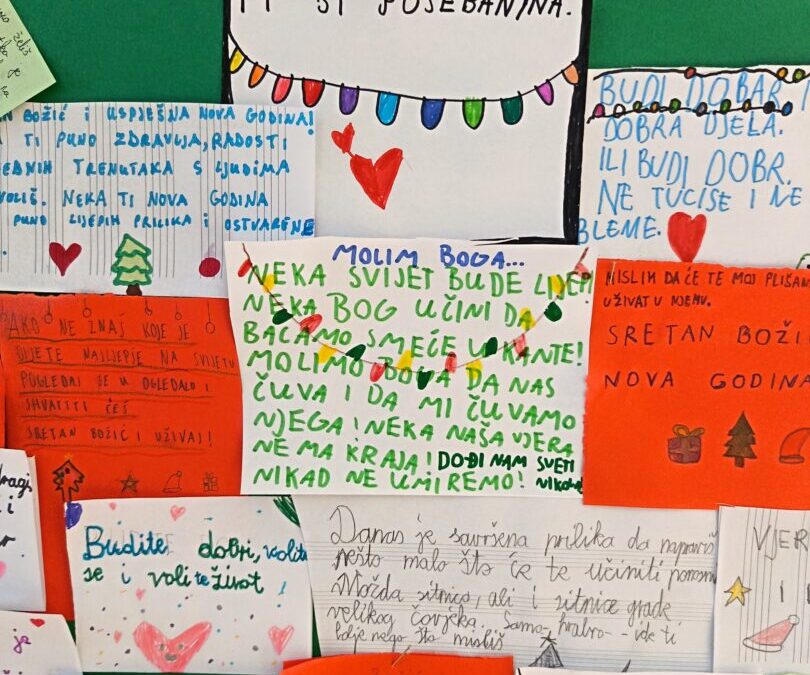 TI SI POSEBAN/NA.
želiš
je
BOŽIĆ I USPJEŠNA NOVA GODINA!
TI PUNO ZDRAVLJA, RADOSTI
TRENUTAKA S LJUDIMA
VOLIŠ. NEKA TI NOVA GODINA
PUNO LIJEPIH PRILIKA I OSTVARENE
BUDI DOBAR
DOBRA DJELA.
ILI BUDI DOBR.
NE TUCISE I NE
BLEME.
MOLIM BOGA...
NEKA SVIJET BUDE LIJEP!
NEKA BOG UČINI DA
BACAMO SMEĆE U KANTE!
MOLIMO BOGA DA NAS
ČUVA I DA MI ČUVAMO
NJEGA! NEKA NAŠA VJERA
NEMA KRAJA! DOĐI NAM SVETI
NIKAD NE UMIREMO! NIKOLA
AKO NE ZNAŠ KOJE JE
DIJETE NAJLJEPŠE NA SVIJETU
POGLEDAJ SE U OGLEDALO I
SHVATITI ĆEŠ
SRETAN BOŽIĆ I UŽIVAJ!
MISLIM DA ĆE TE MOJ PLIŠAN
UŽIVAT U NJEMU.
SRETAN BOŽI
NOVA GODINA
Budite dobri, volite
se i volite život
Danas je savršena prilika da napraviš
nešto malo što će te učiniti ponosni
Možda sitnica, ali i sitnice grade
velikog čovjeka. Samo hrabro - ide ti
bolje nego što misliš
VJER
I
dragi
i
je